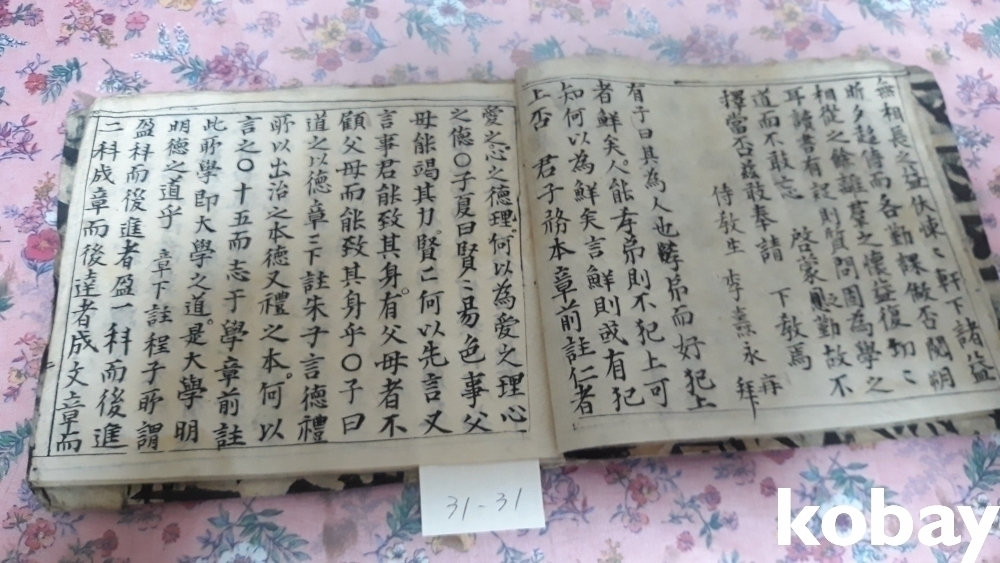 無相長之益伏悚〻軒下諸益
時多起傳而各勤課做否閱朔
相從之餘離羣之懷益復切〻
耳諸書有起則質問固為學之
道而不敢忘 啓蒙勤故不
擇當否玆敢奉請 下教焉
侍教生 李熹永 再拜
有子曰其為人也孝弟而好犯上
者鮮矣人能孝弟則不犯上可
知何以為鮮矣言鮮則或有犯
上否 君子務本章前註仁者
愛之心之德理何以為愛之理心
之德〇子夏曰賢〻易色事父
母能竭其力賢二何以先言又
言事君能致其身有父母者不
顧父母而能致其身乎〇子曰
道之以德章三下註朱子言德禮
所以出治之本德又禮之本何以
言之〇十五而志于學章前註
此所學即大學之道是大學明
明德之道乎 章下註程子所謂
盈科而後進者盈一科而後進
二科成章而後達者成文章而
31-31
kobay